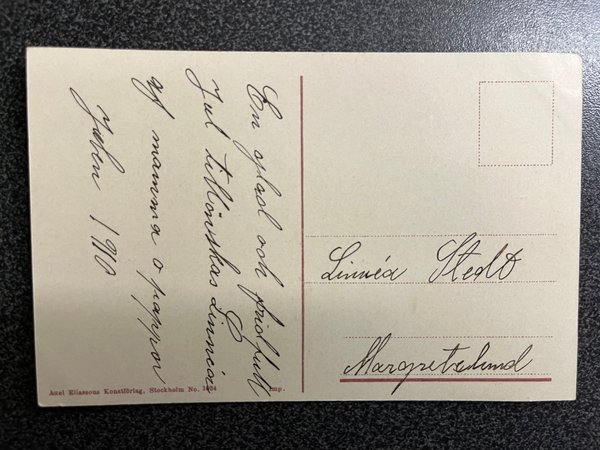 En glad och fridfull
Jul tillönskas Linnéa
af mamma o pappa
Julen 1910
Linnéa Stedt
Margretelund
Axel Eliassons Konstförlag, Stockholm No. Imp.